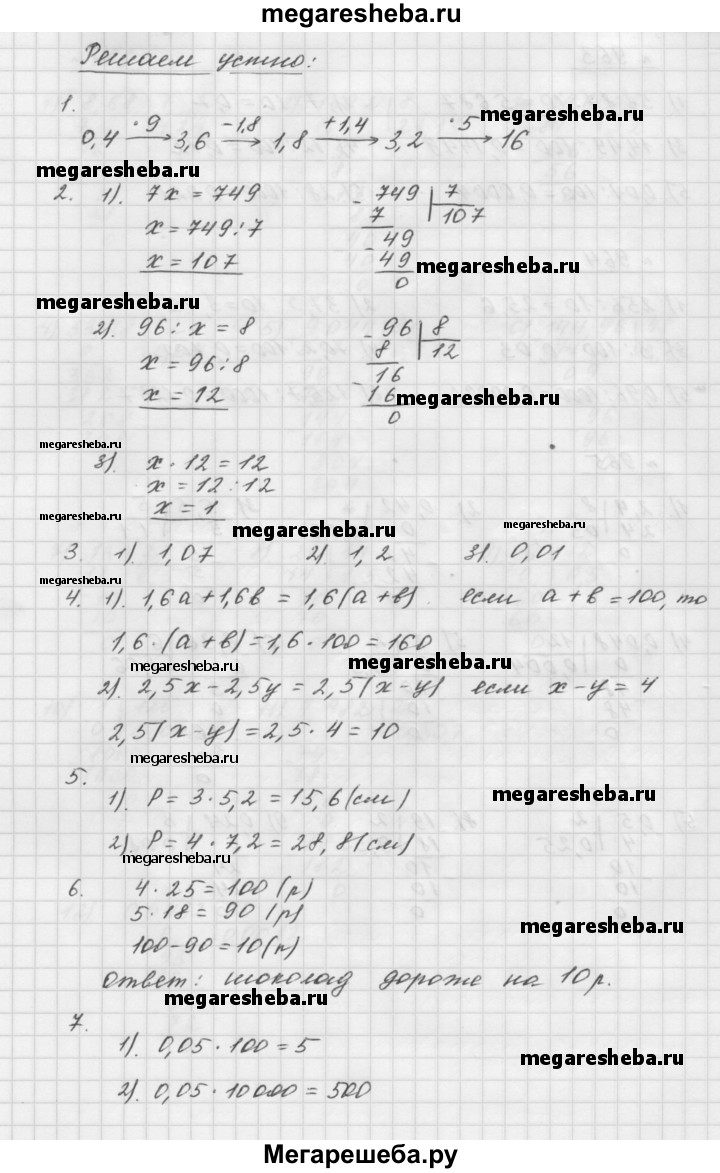 megaresheba.ru
Решаем устно:
1.
0,4 →(·9) 3,6 →(-1,8) 1,8 →(+1,4) 3,2 →(·5) 16
megaresheba.ru
megaresheba.ru
2. 1). 7x = 749
x = 749:7
x = 107
- 749 | 7
7 | 107
- 49
49
0
megaresheba.ru
megaresheba.ru
2). 96 : x = 8
x = 96:8
x = 12
- 96 | 8
8 | 12
- 16
16
0
megaresheba.ru
megaresheba.ru
3). x · 12 = 12
x = 12:12
x = 1
megaresheba.ru
megaresheba.ru
megaresheba.ru
3. 1) 1,07 2) 1,2 3) 0,01
megaresheba.ru
4. 1). 1,6a + 1,6в = 1,6(a+в) если a+в = 100, то
1,6·(a+в) = 1,6·100 = 160
megaresheba.ru
megaresheba.ru
2). 2,5x - 2,5y = 2,5(x-y) если x-y = 4
2,5(x-y) = 2,5·4 = 10
megaresheba.ru
5.
1). P = 3·5,2 = 15,6 (см)
megaresheba.ru
2). P = 4·7,2 = 28,8 (см)
megaresheba.ru
6. 4·25 = 100 (р)
5·18 = 90 (р)
megaresheba.ru
100-90 = 10 (р)
Ответ: шоколад дороже на 10 р.
megaresheba.ru
7.
1). 0,05·100 = 5
megaresheba.ru
2). 0,05·10000 = 500
Мегарешеба.ру